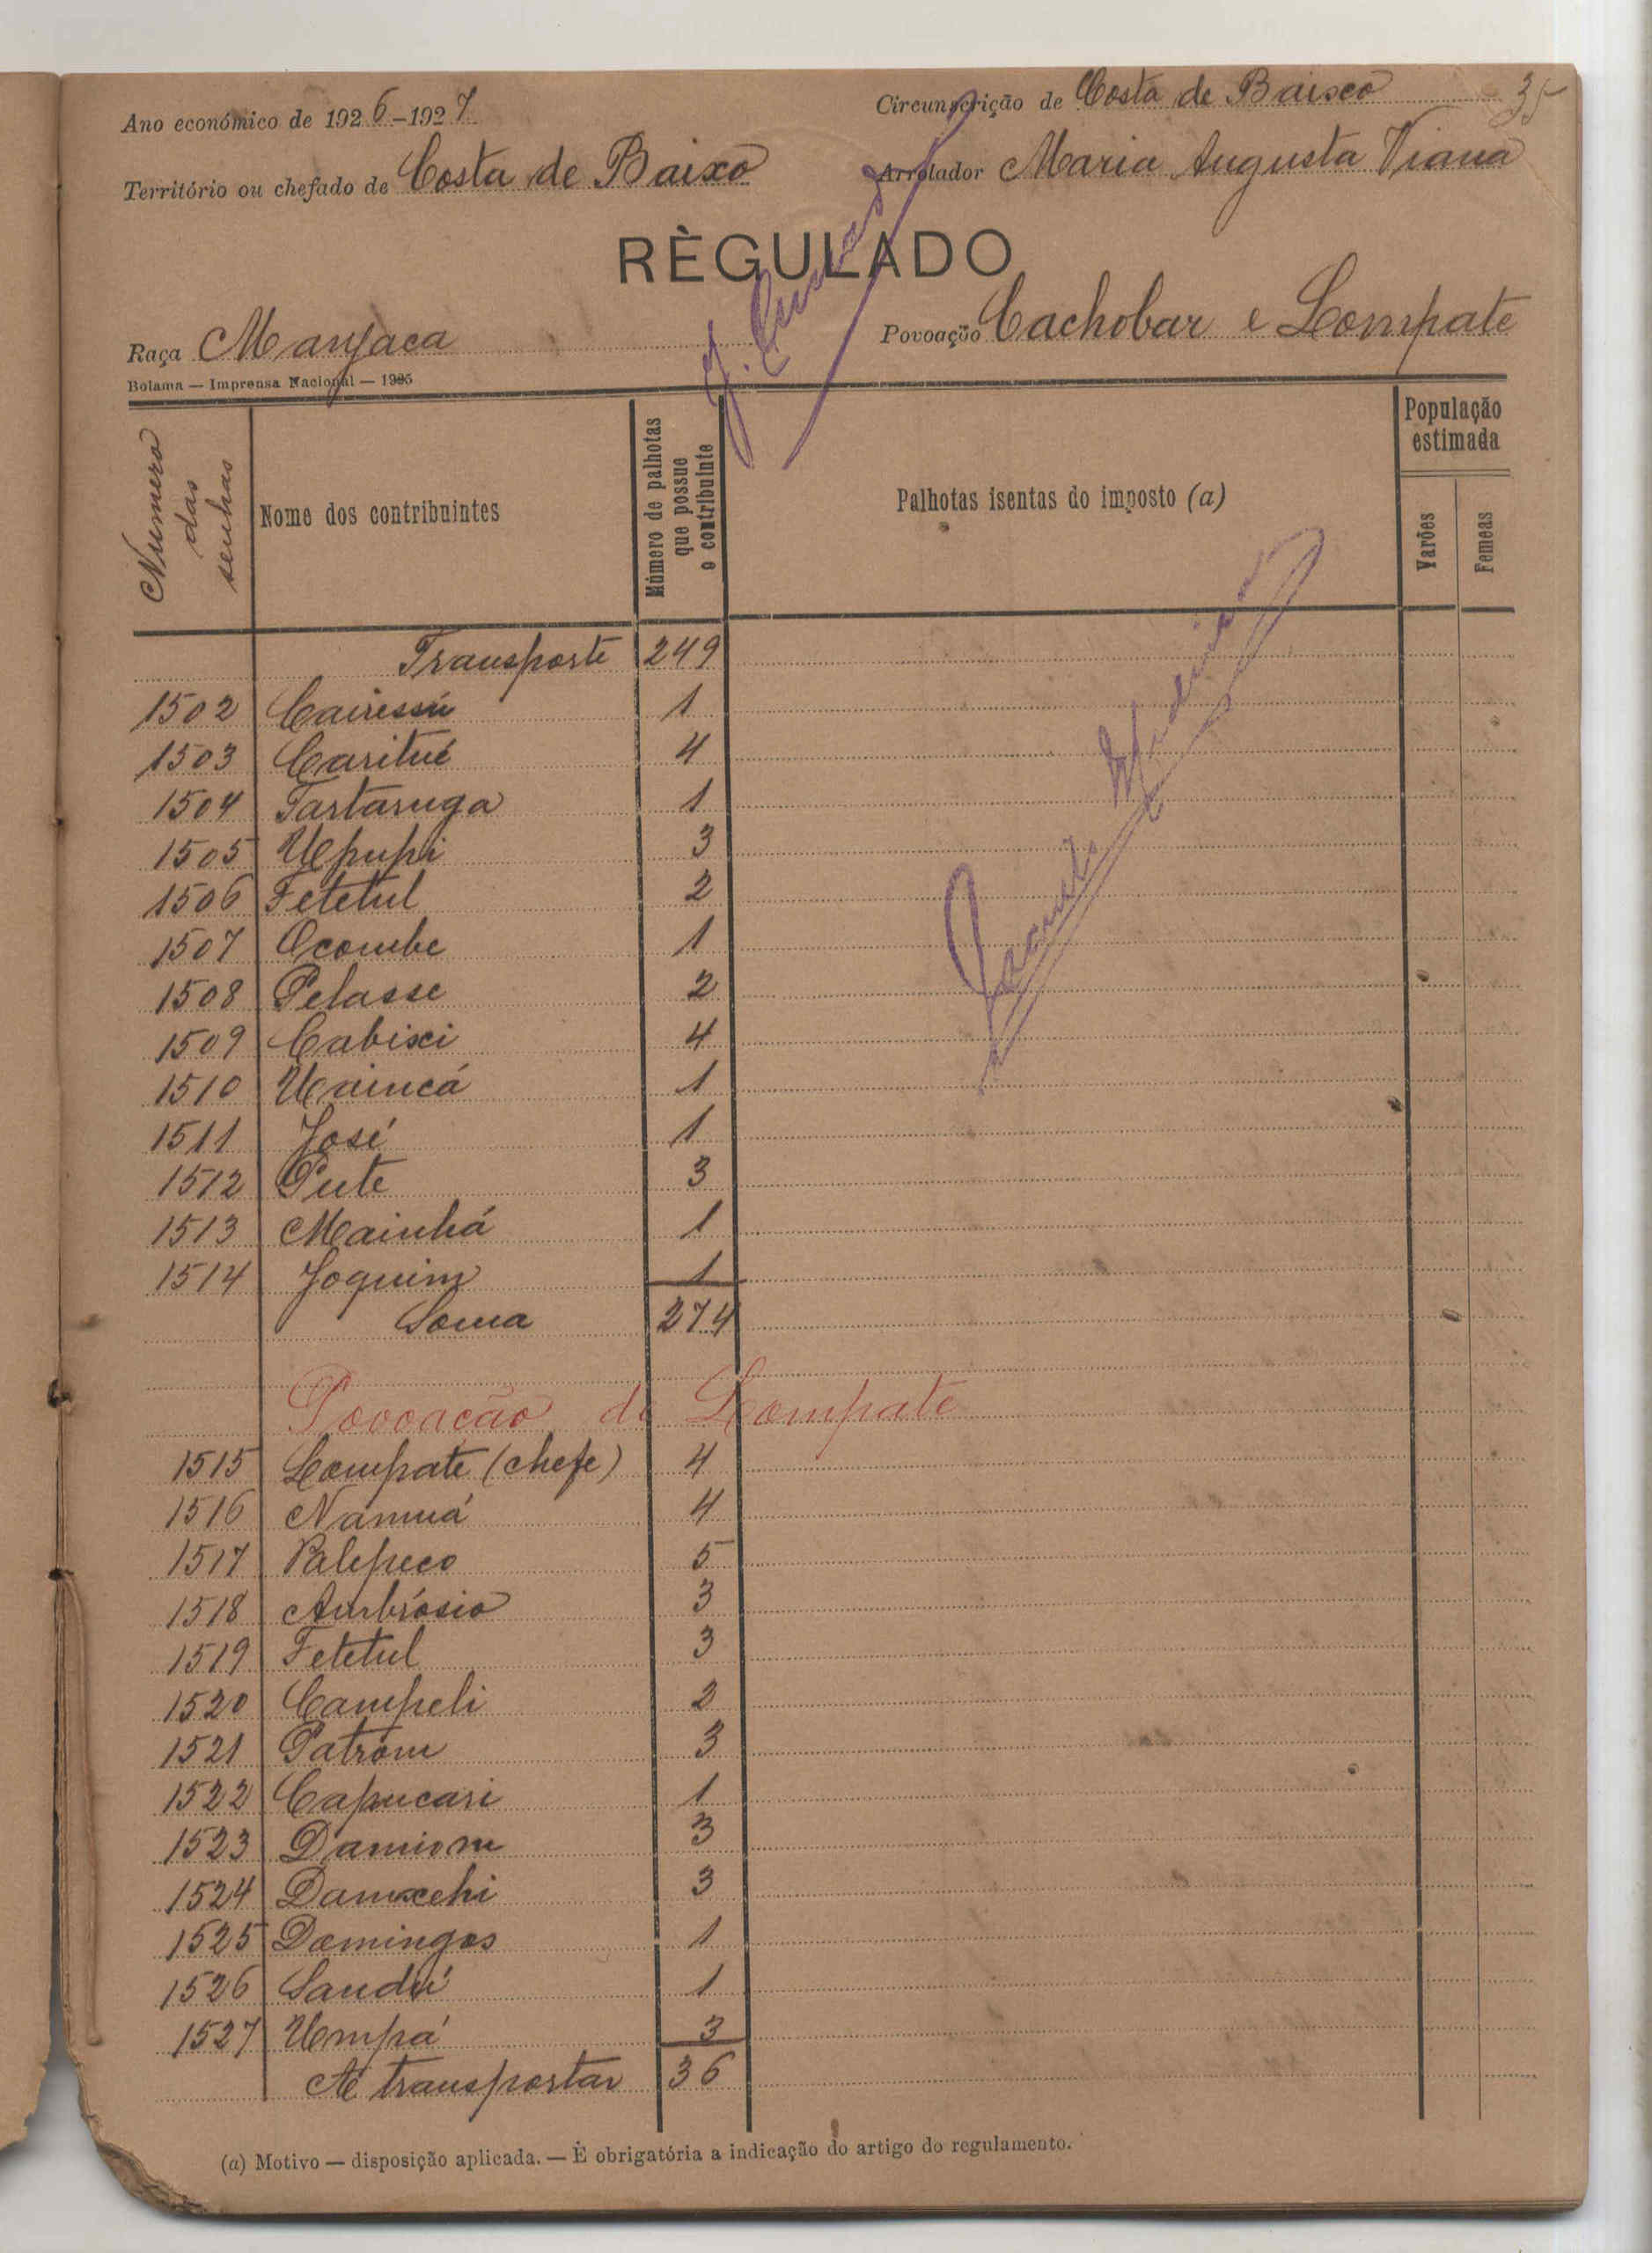 Ano económico de 1926-1927
Circunscrição de Costa de Baixo 35
Território ou chefado de Costa de Baixo
Arrolador Maria Augusta Viana
RÈGULADO
Raça Manjaca
Povoação Cachobar e Lompate
Bolama — Imprensa Nacional — 1925
Numero das senhas
Nome dos contribuintes
Número de palhotas que possue o contribuinte
Palhotas isentas do imposto (a)
População estimada
Varões
Femeas
Transporte 249
1502 Cairessú 1
1503 Caritué 4
1504 Tartaruga 1
1505 Upupi 3
1506 Fetetul 2
1507 Ocombe 1
1508 Pelasse 2
1509 Cabixi 4
1510 Uaincá 1
1511 José 1
1512 Pute 3
1513 Mainhá 1
1514 Joquim 1
Soma 274
Povoação de Lompate
1515 Lompate (chefe) 4
1516 Namuá 4
1517 Palepeco 5
1518 Ambrósio 3
1519 Fetetul 3
1520 Campeli 2
1521 Patrom 3
1522 Capucari 1
1523 Damiom 3
1524 Damxehi 3
1525 Domingos 1
1526 Sandú 1
1527 Umpá 3
A transportar 36
(a) Motivo — disposição aplicada. — É obrigatória a indicação do artigo do regulamento.